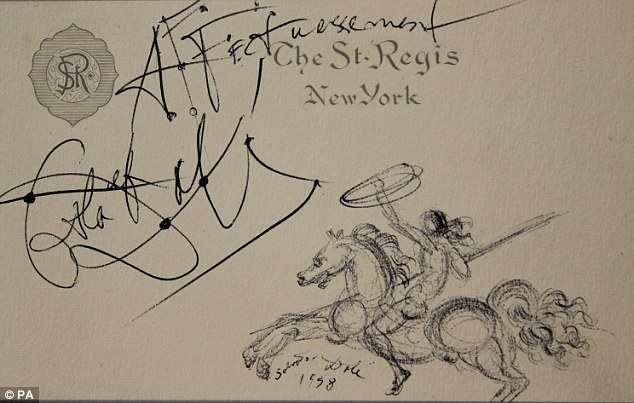 Affectueusement
The St-Regis
New York
SR
Gala et Dalí
Salvador Dalí
1958
© PA